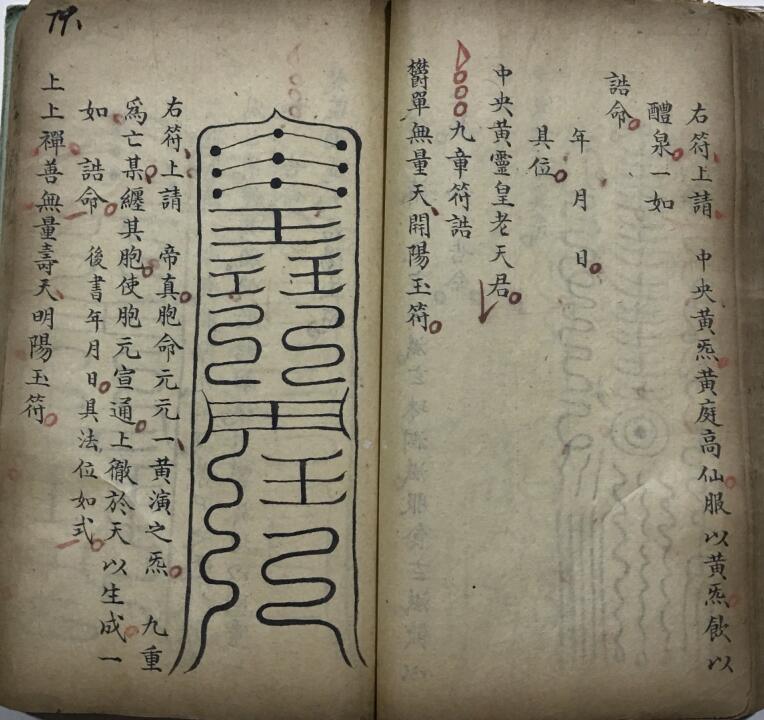 右符上請　中央黃炁黃庭高仙服以黃炁飲以
醴泉一如
誥命
年　月　日
具位
中央黃靈皇老天君
九章符誥
欝單無量天開陽玉符
右符上請　帝真胞命元元一黃演之炁　九重
為亡某纏其胞使胞元宣通上徹於天以生成一
如　誥命　後書年月日具法位如式
上上禪善無量壽天明陽玉符
79.